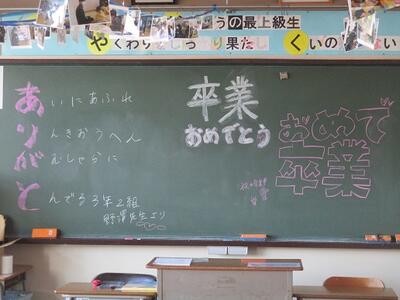 うの最上級生
やくわり しっかり果たし くいの ない
ありがと
あいにあふれ
りんきおうへん
がむしゃらに
とんでる3年2組
野澤先生より
卒業
おめでとう
おめで
卒業